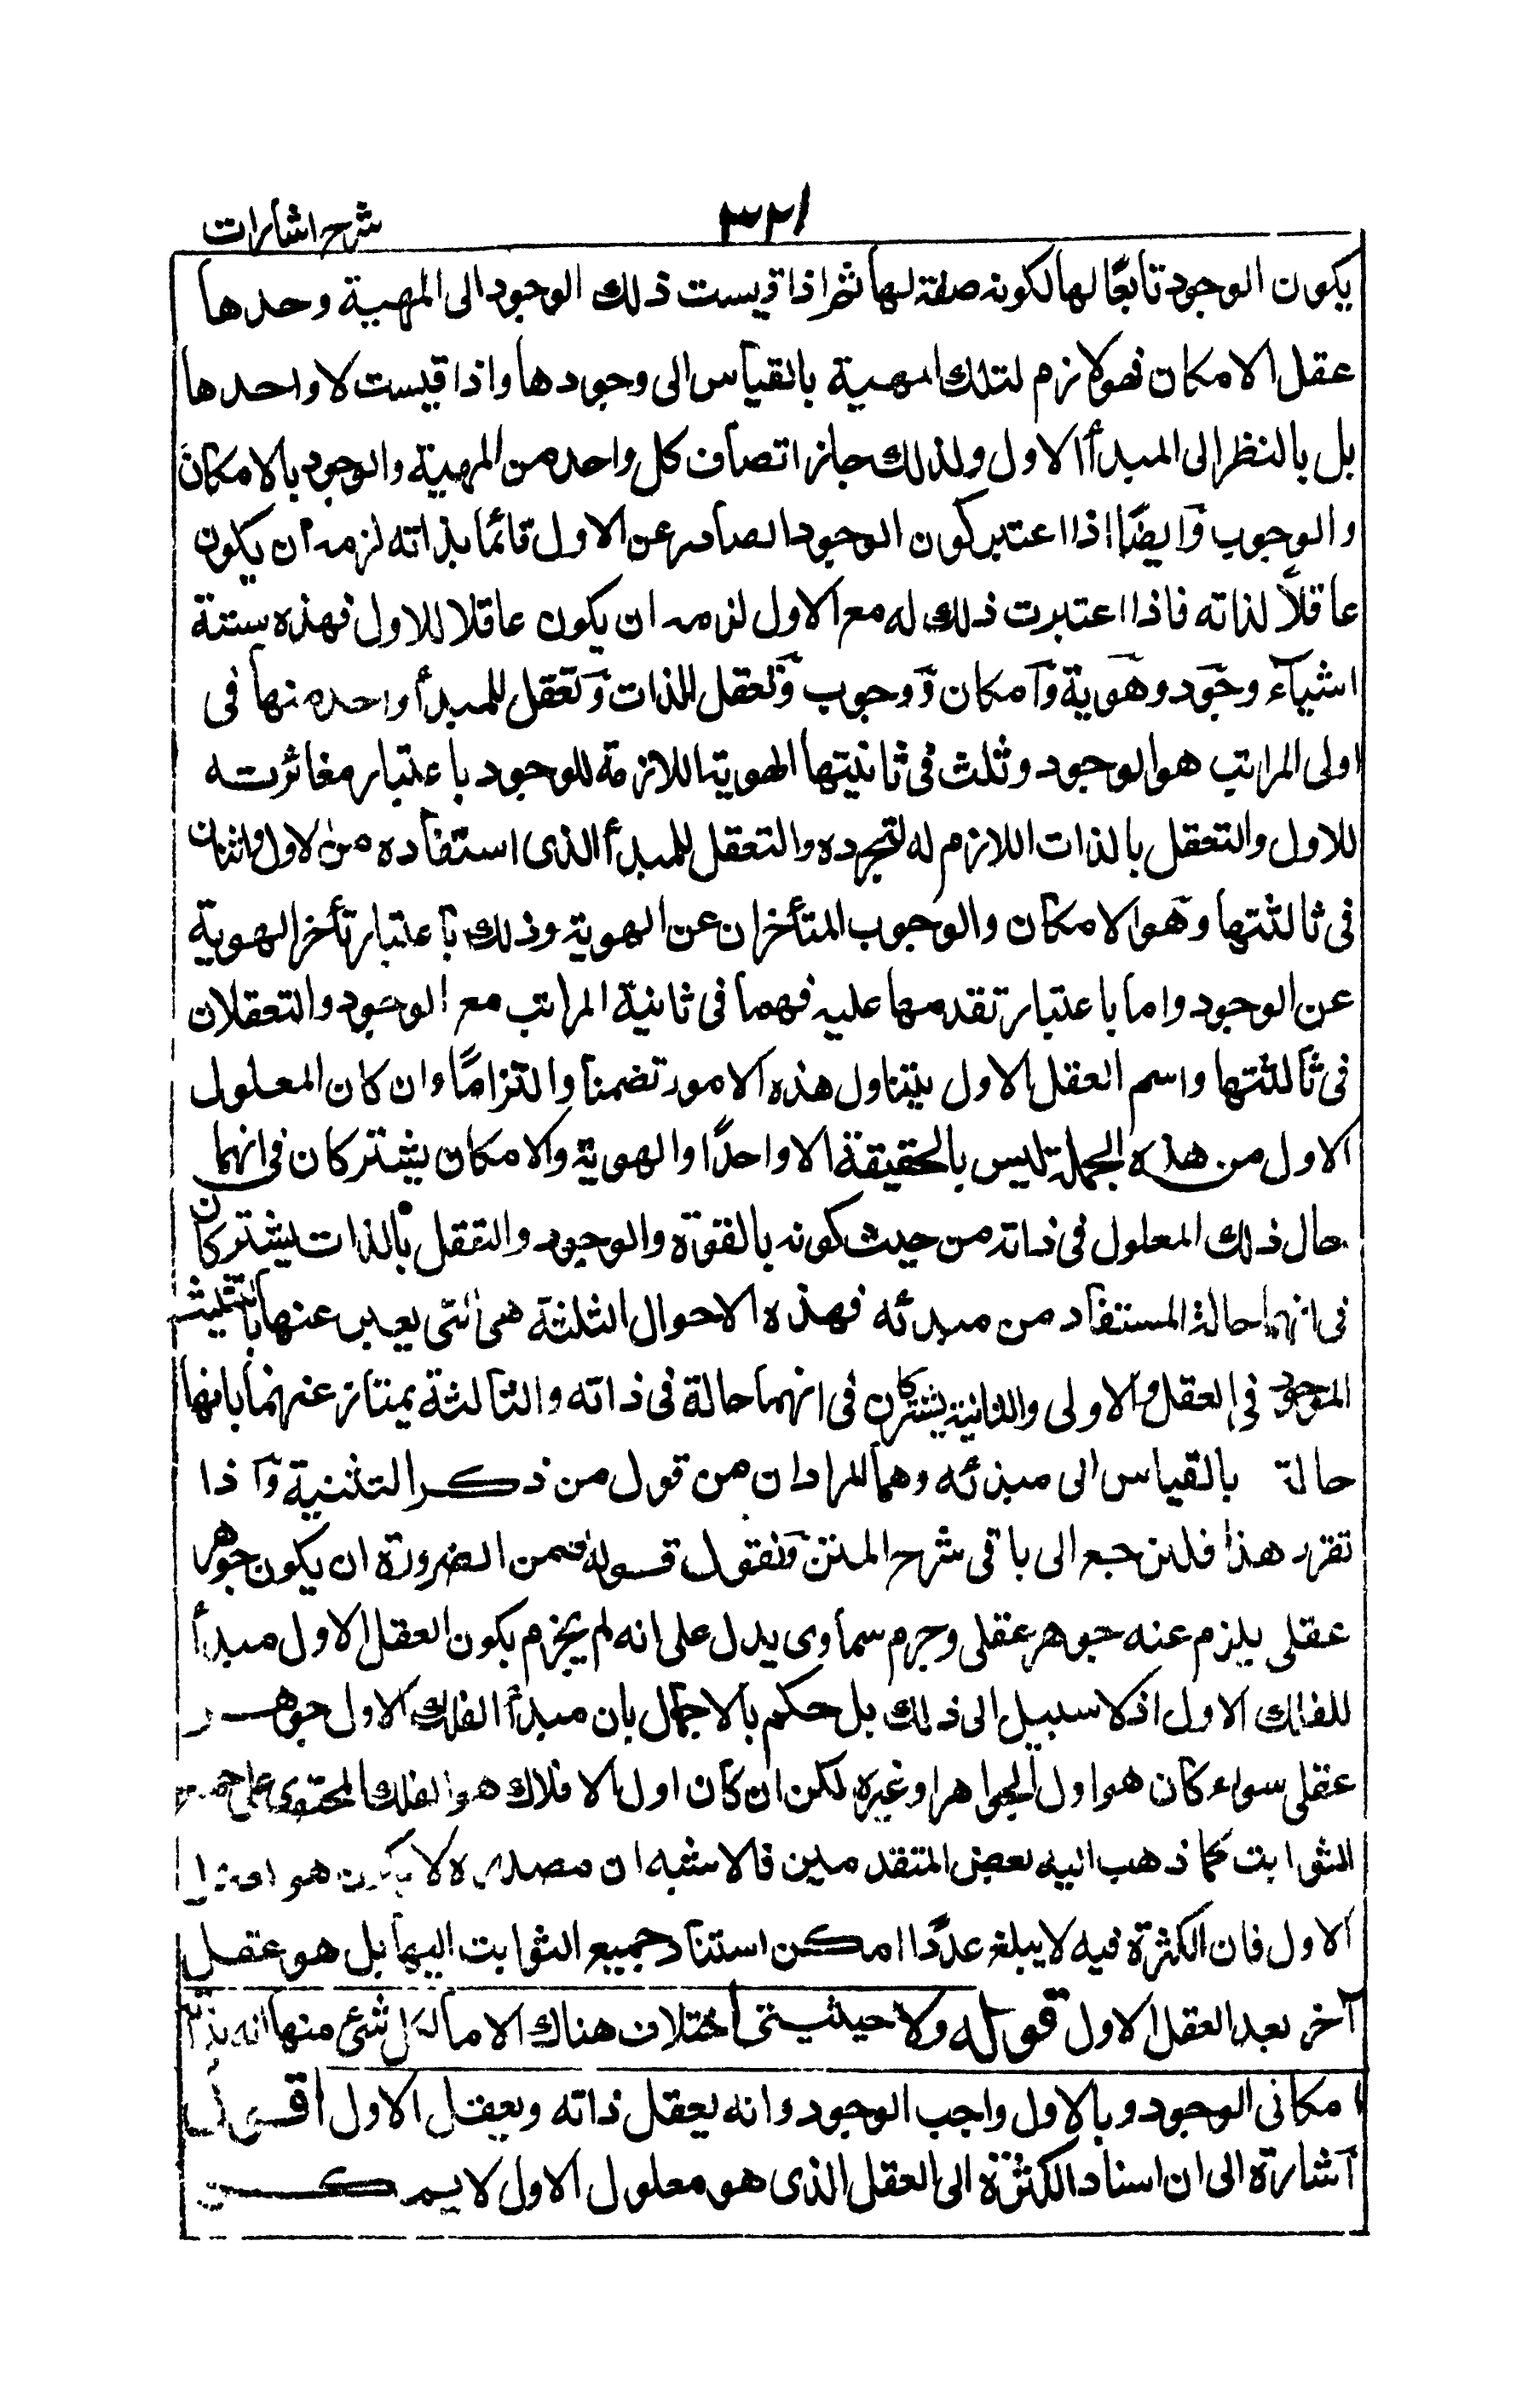 ٣٢١
شرح اشارات
يكون الوجود تابعًا لها لكونه صفة لها ثم اذا قيست ذلك الوجود الى المهية وحدها
عقل الامكان فهو لازم لتلك المهية بالقياس الى وجودها واذا قيست لا وحدها
بل بالنظر الى المبدأ الاول ولذلك جاز اتصاف كل واحد من المهية والوجود بالامكان
والوجوب وايضًا اذا اعتبر كون الوجود الصادر عن الاول قائما بذاته لزمه ان يكون
عاقلاً لذاته فاذا اعتبرت ذلك له مع الاول لزمه ان يكون عاقلا للاول فهذه ستة
اشياء وجود وهوية وامكان ووجوب وتعقل للذات وتعقل للمبدأ واحد منها فى
اولى المراتب هو الوجود وثلث فى ثانيتها الهوية اللازمة للوجود باعتبار مغائرته
للاول والتعقل بالذات اللازم له لتجرده والتعقل للمبدأ الذى استفاده من الاول واثنان
فى ثالثتها وهو الامكان والوجوب المتأخران عن الهوية وذلك باعتبار تأخر الهوية
عن الوجود واما باعتبار تقدمها عليه فهما فى ثانية المراتب مع الوجود والتعقلان
فى ثالثتها واسم العقل الاول يتناول هذه الامور تضمنا والتزامًا وان كان المعلول
الاول من هذه الجملة ليس بالحقيقة الا واحدًا والهوية والامكان يشتركان فى انهما
حال ذلك المعلول فى ذاته من حيث كونه بالقوة والوجود والتعقل بالذات يشتركان
فى انهما حالة المستفاد من مبدئه فهذه الاحوال الثلثة هى التى يعبر عنها بالتثليث
الموجود فى العقل والاولى والثانية يشتركان فى انهما حالة فى ذاته والثالثة يمتاز عنهما بانها
حالة بالقياس الى مبدئه وهما المرادان من قول من ذكر التثنية واذا
تقرر هذا فلنرجع الى باقى شرح المتن فنقول قوله فمن الضرورة ان يكون جوهر
عقلى يلزم عنه جوهر عقلى وجرم سماوى يدل على انه لم يجزم بكون العقل الاول مبدأ
للفلك الاول اذ لا سبيل الى ذلك بل حكم بالاجمال بان مبدأ الفلك الاول جوهر
عقلى سواء كان هو اول الجواهر او غيره لكن ان كان اول الافلاك هو الفلك المحتوى على جميع
الثوابت كما ذهب اليه بعض المتقدمين فالاشبه ان مصدره لا يكون هو العقل
الاول فان الكثرة فيه لا يبلغ عددًا امكن استناد جميع الثوابت اليها بل هو عقل
آخر بعد العقل الاول قوله ولا حيثيتى اختلاف هناك الا ما لكل شئ منها انه بذاته
امكانى الوجود وبالاول واجب الوجود وانه يعقل ذاته ويعقل الاول اقول
اشارة الى ان اسناد الكثرة الى العقل الذى هو معلول الاول لا يمكن